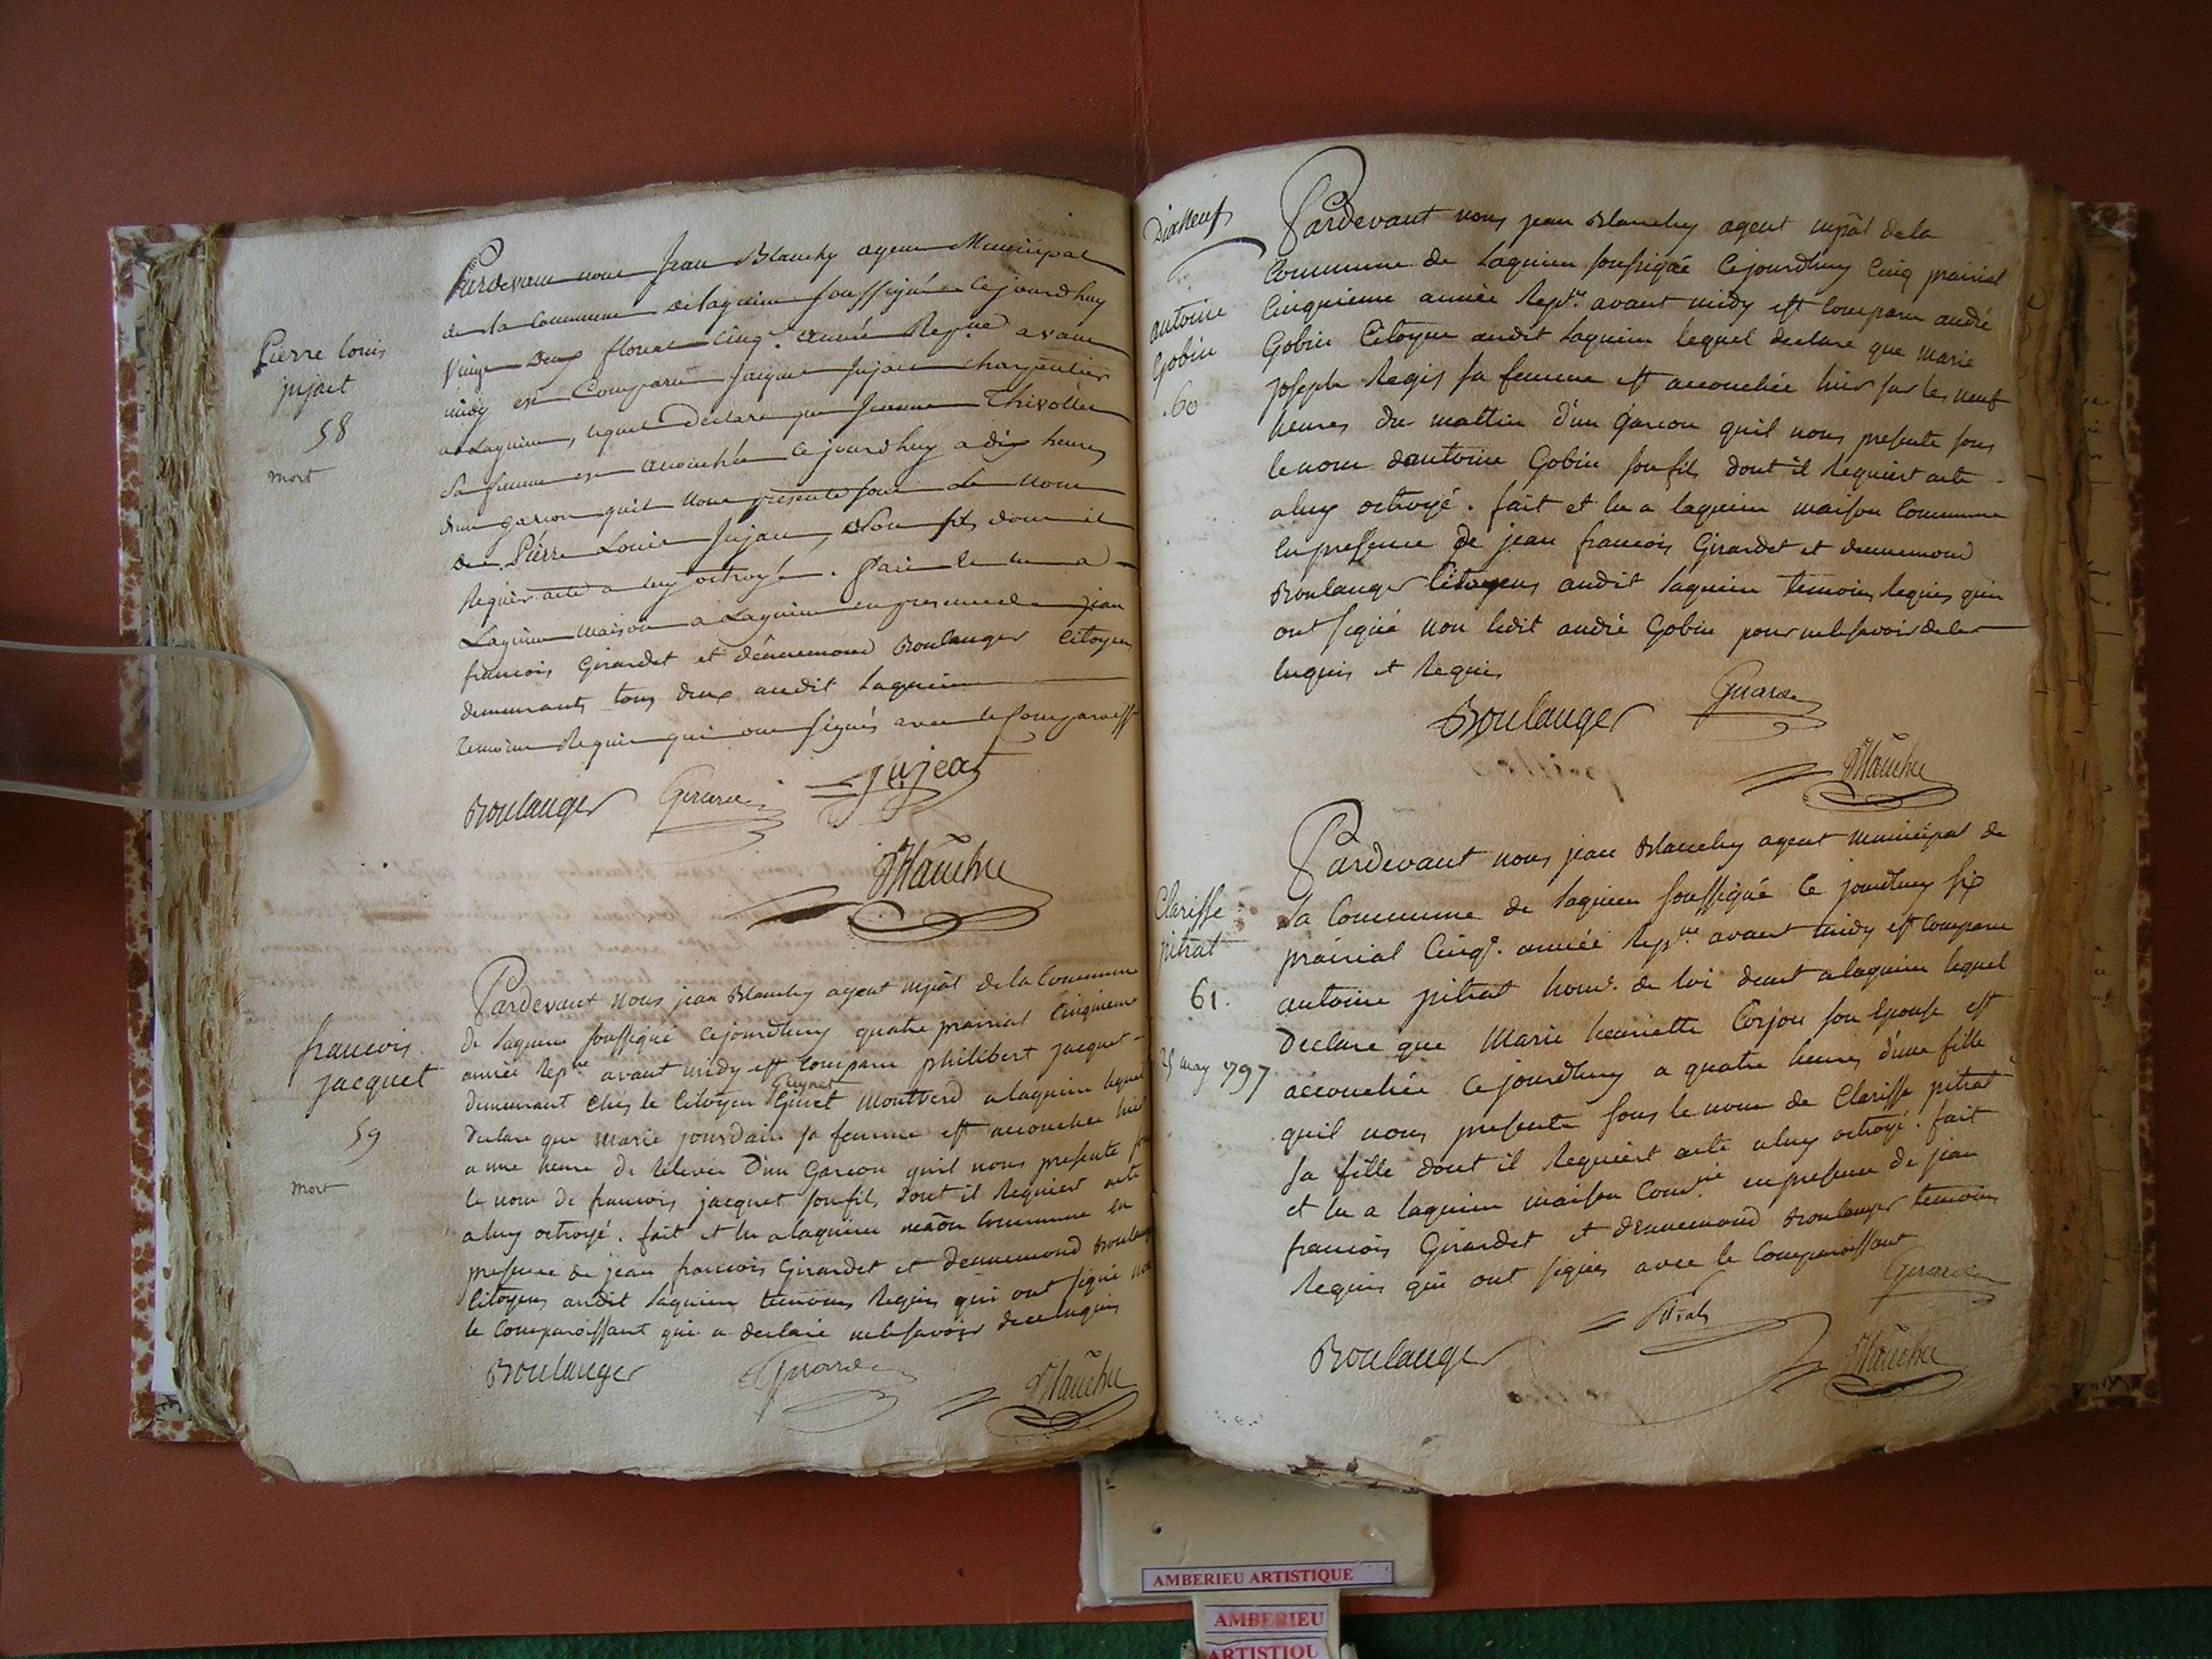 Pierre louis
jujact
58
mort
Pardevant nous Jean Blanchy agent Municipal
de la Commune de lagnieu soussigné Cejourdhuy
vingt Deux floreal Cinq.e année Rep.ne avant
midy est Comparu jacque jujact charpentier
a Lagnieu, lequel Declare que Jeanne Thivollet
Sa femme est accouchée Cejourdhuy a dix heures
dun garcon quil nous presente sous Le nom
de Pierre Louis Jujact, Son fils dont il
Requier acte a luy octroyé. fait et lu a
Lagnieu maison a Lagnieu en presence de jean
francois Girardet et dennemond Boulanger Citoyens
demeurants tous deux audit lagnieu
temoins Requis qui ont signés avec le Comparaiss
Boulanger Girarde jujeat
Blanchy
francois
jacquet
59
mort
Pardevant nous jean Blanchy agent mpãl de la Commune
de lagnieu soussigné cejourdhuy quatre prairial Cinquieme
année Repne avant midy est comparu philibert jacquet
Guynet
demeurant ches le Citoyen Guiet Montverd a lagnieu lequel
declare que marie jourdain sa femme est accouchée hier
a une heure de relevée D'un Garcon quil nous presente
le nom de francois jacquet son fils, dont il Requiert acte
a luy octroyé. fait et lu a lagnieu maõn Commune en
presence de jean francois Girardet et Dennemond Boulang
Citoyens audit lagnieu temoins Requis qui ont signé non
le Comparoissant qui a declaré ne le savoir de ce enquis
Boulanger Girarde
Blanchy
Dixneuf
antoine
Gobin
.60
Pardevant nous jean Blanchy agent mpãl de la
Commune de lagnieu soussigné Cejourdhuy Cinq prairial
Cinquieme année Rep.ne avant midy est comparu andré
Gobin Citoyen audit Lagnieu lequel declare que marie
joseph Regis sa femme est accouchée hier sur les neuf
heures du mattin d'un garcon quil nous presente sous
le nom dantoine Gobin son fils dont il Requiert acte
a luy octroyé. fait et lu a lagnieu maison Commune
en presence de jean francois Girardet et dennemond
Boulanger Citoyens audit lagnieu temoins Requis qui
ont signé non ledit andré Gobin pour ne le savoir de ce
enquis et Requis
Boulanger Girarde
Blanchy
Clarisse
pitrat
61.
25 may 1797
Pardevant nous jean Blanchy agent municipal de
la Commune de lagnieu soussigné Ce jourdhuy six
prairial Cinq.e année Rep.ne avant midy est comparu
antoine pitrat hom.e de loi demt a lagnieu lequel
Declare que Marie henriette Corjon son Epouse est
accouchée Cejourdhuy a quatre heures d'une fille
quil nous presente sous le nom de Clarisse pitrat
sa fille dont il Requiert acte a luy octroyé. fait
et lu a lagnieu maison Com.ne en presence de jean
francois Girardet et Dennemond Boulanger temoins
Requis qui ont signés avec le Comparoissant
Girarde
Pitrat
Boulanger
Blanchy
AMBERIEU ARTISTIQUE
AMBERIEU
ARTISTIQU